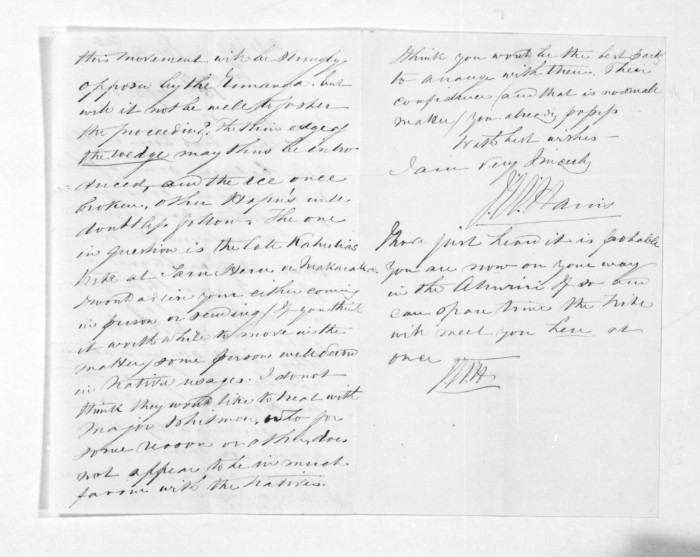 this movement will be strongly
opposed by the Timanga. but
will it not be well to foster
the proceeding? The thin edge of
the wedge may thus be intro-
duced, and the ice once
broken, other Hapu's will
doubtless follow. The one
in question is the late Kahutia's
tribe at
or Makaraka
I would advise your either coming
in person or sending, if you think
it worth while to move in the
matter, some person well down
in Native usages. I do not
think they would like to treat with
Major Whitmore, who for
some reason or other, does
not appear to be in much
favour with the Natives.
think you would be the best party
to arrange with them. Their
confidence (and that is no small
matter) you already possess
With best wishes
I am Very Sincerely
Harris
I have just heard it is probable
you are now on your way
in the Ahuriri If so and
can spare time the tribe
will meet you here at
once